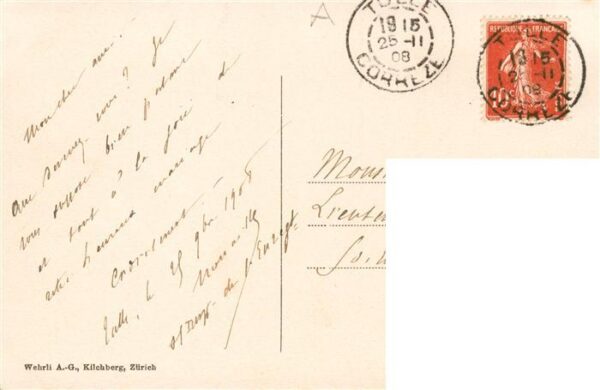 A
TULLE
19 15
25-11
08
CORREZE
RÉPUBLIQUE FRANÇAISE
10c
TULLE
19 15
11
08
CORREZE
Mon cher ami.
Que devenez vous? Je
vous suppose bien portant
et tout à la joie d
votre heureux mariage
Cordialement
Tulle, le 25 9bre 1908
Monsi
Lieuten
Wehrli A.-G., Kilchberg, Zürich